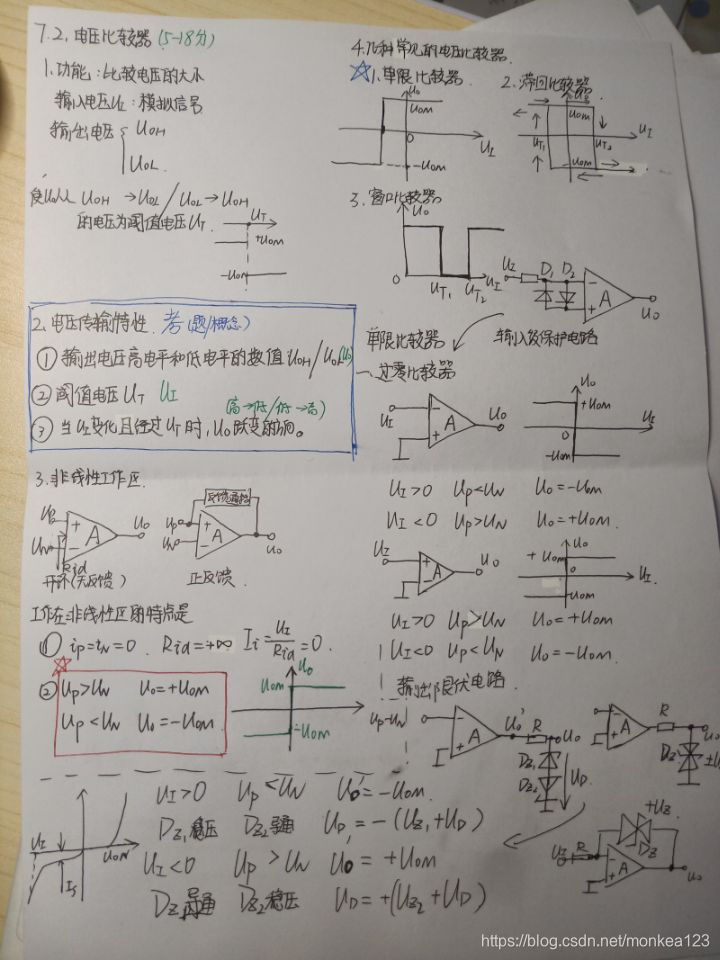 7.2. 电压比较器 (5-18分)
1. 功能：比较电压的大小
输入电压UI：模拟信号
输出电压 { UOH
UOL
使Uo从 UOH →UOL / UOL→UOH
的电压为阈值电压UT.
UT
+UOM
-UOM
2. 电压传输特性. 考(题/概念)
① 输出电压高电平和低电平的数值UOH/UOL(Uo)
② 阈值电压UT UI
(高→低/低→高)
③ 当UI变化且经过UT时, Uo跃变的方向。
3. 非线性工作区.
UP + A Uo
UN -
Rid
开环(无反馈)
反馈通路
UP + A
UN - Uo
正反馈.
工作在非线性区的特点是
① iP=iN=0. Rid=+∞ Ii=UI/Rid=0.
② UP>UN Uo=+UOM
UP<UN Uo=-UOM.
Uo
UOM
-UOM
UP-UN
4. 几种常见的电压比较器.
☆1. 单限比较器.
Uo
UOM
0
UI
-UOM
2. 滞回比较器
Uo
UOM
UI
UT1
UT2
-UOM
3. 窗口比较器
Uo
0
UT1
UT2
UI
UI D1 D2
- A
+ Uo
输入级保护电路
单限比较器
一.过零比较器
UI - A Uo
+
Uo
+UOM
0 UI
-UOM
UI>0 UP<UN Uo=-UOM
UI<0 UP>UN Uo=+UOM.
UI + A Uo
-
Uo
+UOM
0
UI
-UOM
UI>0 UP>UN Uo=+UOM
UI<0 UP<UN Uo=-UOM.
输出限伏电路
- A Uo' R Uo
+ DZ1
DZ2 UD
- A R Uo
+ DZ ±U
UI>0 UP<UN Uo'=-UOM.
DZ1稳压 DZ2导通 UD=-(UZ1+UD)
UI<0 UP>UN Uo'=+UOM
DZ1导通 DZ2稳压 UD=+(UZ2+UD)
UI
UON
IS
+UZ
DZ
UI R - A
+ Uo
https://blog.csdn.net/monkea123